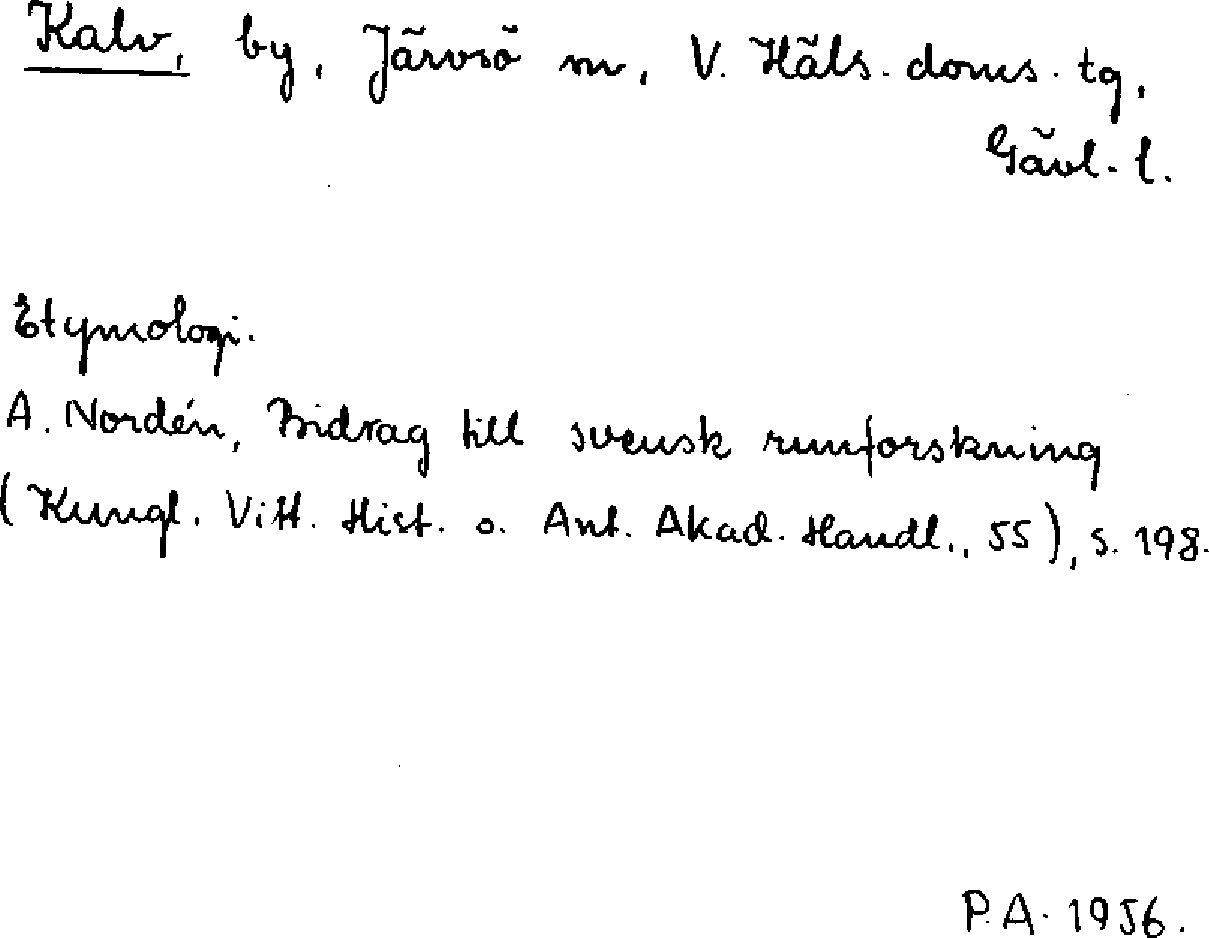 Kalv, by, Järvsö sn, V. Häls. doms. tg,
Gävl. l.
Etymologi.
A. Nordén, Bidrag till svensk runforskning
(Kungl. Vitt. Hist. o. Ant. Akad. Handl., 55), s. 198.
P.A. 1956.